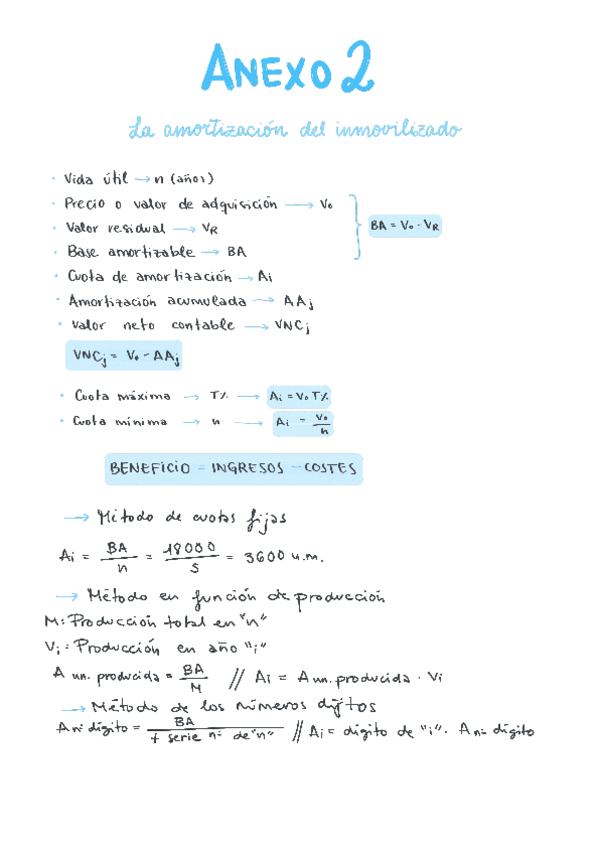 ANEXO 2
La amortización del inmovilizado
· Vida útil → n (años)
· Precio o valor de adquisición → V₀
· Valor residual → VR
BA = V₀ - VR
· Base amortizable → BA
· Cuota de amortización → Ai
· Amortización acumulada → AAj
· Valor neto contable → VNCj
VNCj = V₀ - AAj
· Cuota máxima → T% → Ai = V₀ T%
· Cuota mínima → n → Ai = V₀/n
BENEFICIO = INGRESOS - COSTES
→ Método de cuotas fijas
Ai = BA/n = 18000/5 = 3600 u.m.
→ Método en función de producción
M: Producción total en "n"
Vi: Producción en año "i"
A un. producida = BA/M // Ai = A un. producida · Vi
→ Método de los números dígitos
A nº dígito = BA/+ serie nº de "n" // Ai = dígito de "i". A nº dígito